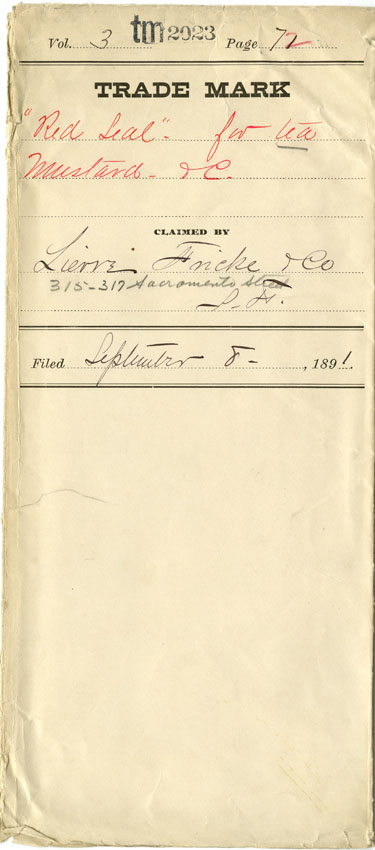 Vol. 3 tm2023 Page 72
TRADE MARK
"Red Seal" - for tea
Mustard - &C.
CLAIMED BY
Lievre Fricke & Co
315-317 Sacramento Street
S. F.
Filed September 8 - , 1891.